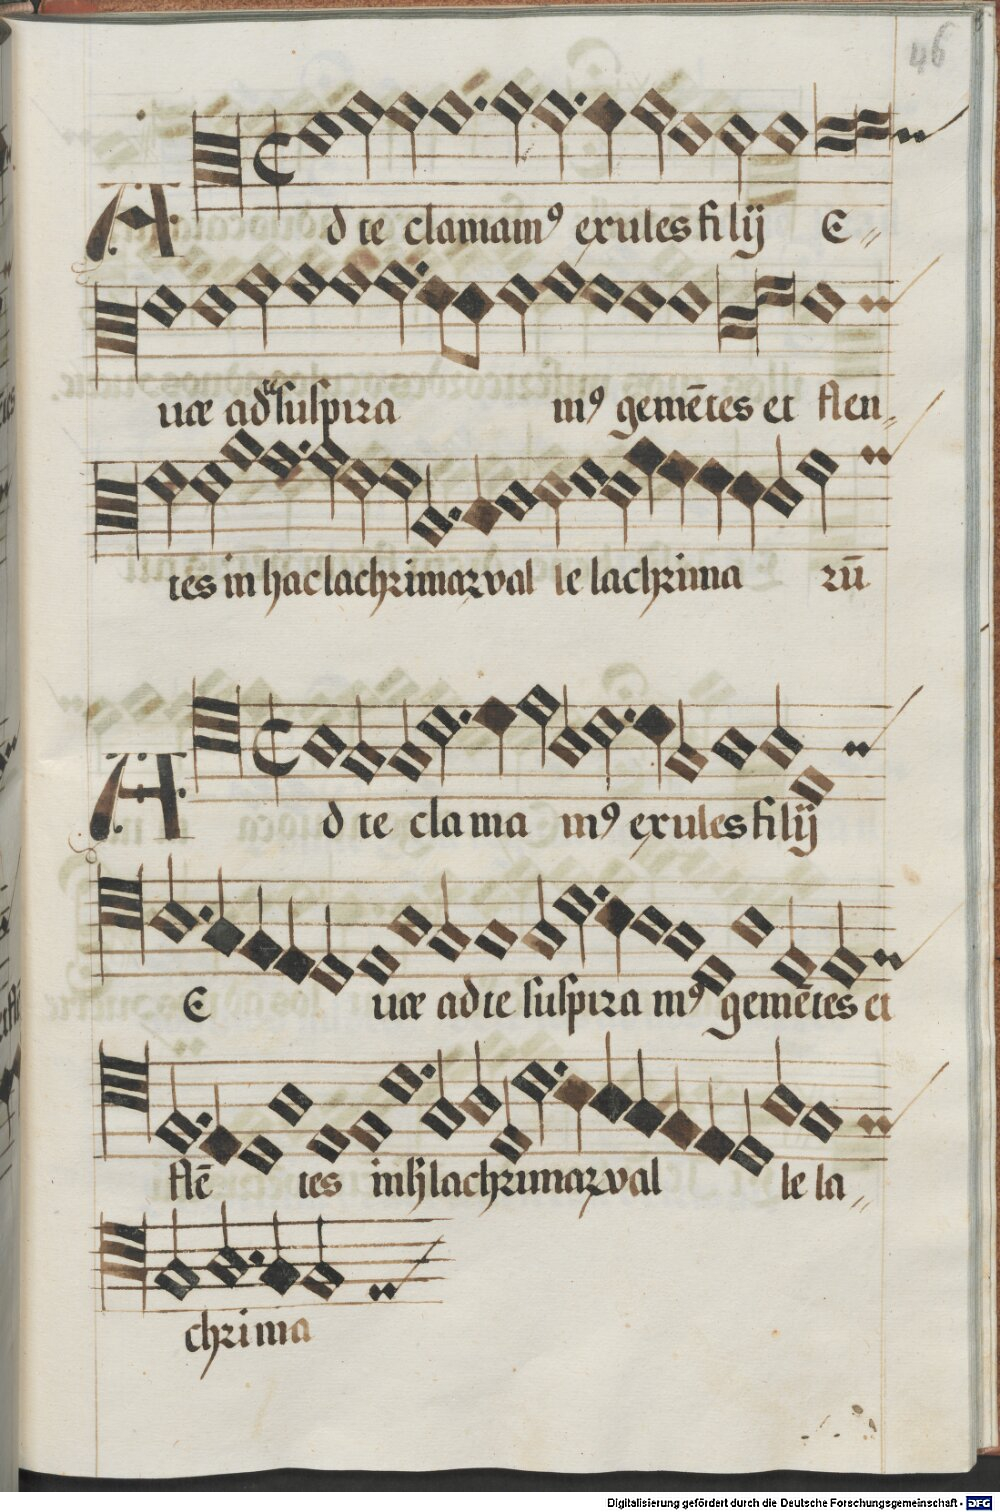 46
Ad te clamamꝰ exules filij E
uæ ad te suspira mꝰ gemētes et flen
tes in hac lachrimaꝝ val le lachrima rū
Ad te clama mꝰ exules filij
E uæ ad te suspira mꝰ gemētes et
flē tes in h lachrimaꝝ val le la
chrima
Digitalisierung gefördert durch die Deutsche Forschungsgemeinschaft - DFG